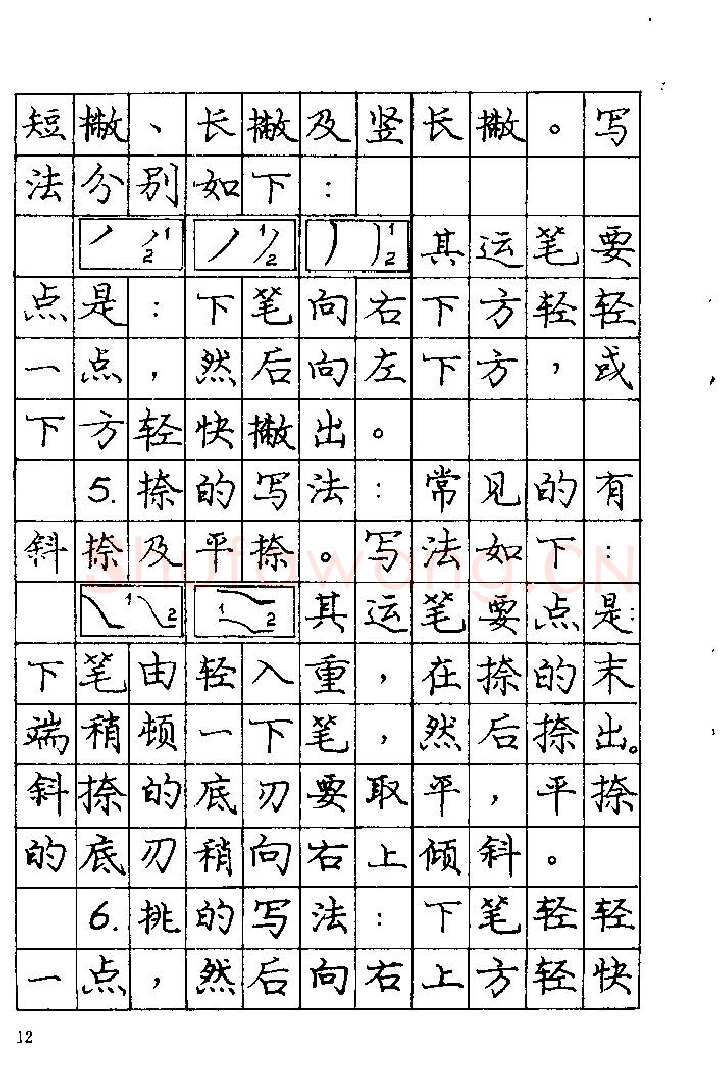 短撇、长撇及竖长撇。写
法分别如下：
1 2 1 2 1 2 其运笔要
点是：下笔向右下方轻轻
一点，然后向左下方，或
下方轻快撇出。
5. 捺的写法：常见的有
斜捺及平捺。写法如下：
1 2 1 2 其运笔要点是：
下笔由轻入重，在捺的末
端稍顿一下笔，然后捺出。
斜捺的底刃要取平，平捺
的底刃稍向右上倾斜。
6. 挑的写法：下笔轻轻
一点，然后向右上方轻快
12
shufawang.CN